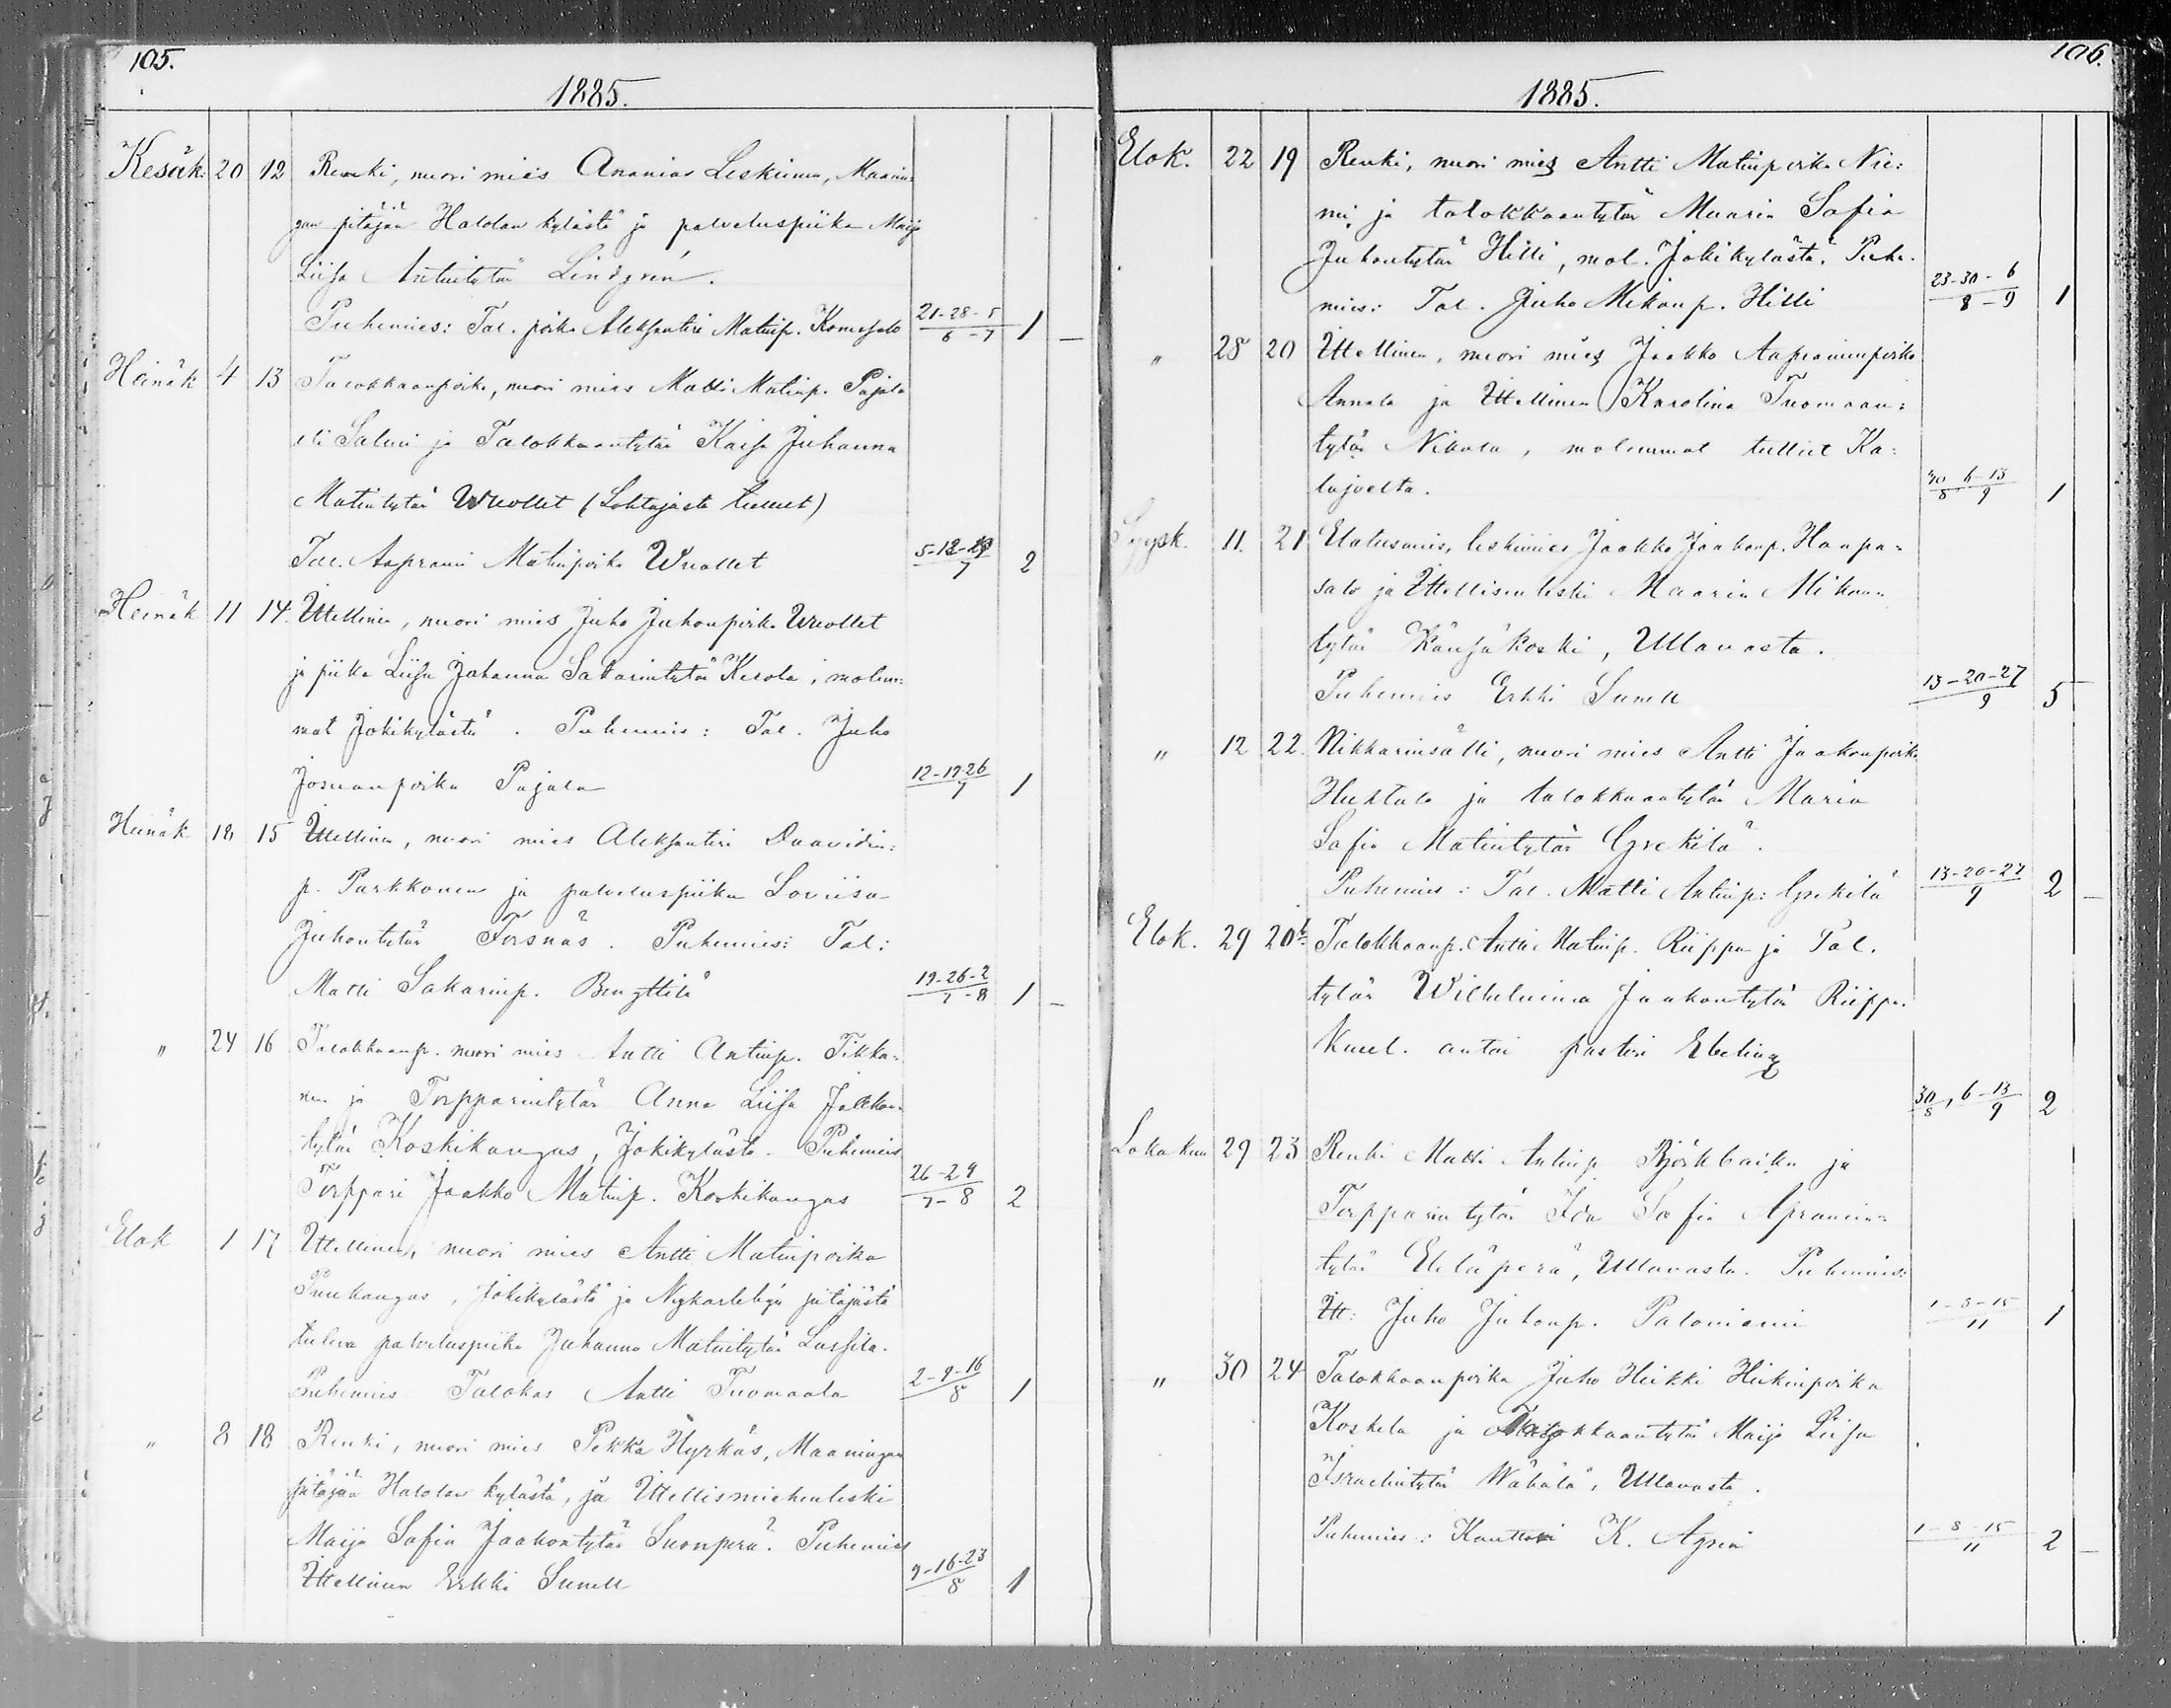 105.
1885.
Kesäk. 20 12 Renki, nuori mies Ananias Leskinen, Maanin=
gan pitäjän Halolan kylästä ja palveluspiika Maija
Liisa Antintytär Lindgrén.
Puhemies: Tal. poika Aleksanteri Matinp. 21-28-5 / 6-7 1 —
Heinäk 4 13 Talokkaanpoika, nuori mies Matti Matinp. Pajala
eli Salmi ja Talokkaantytär Kaisa Juhanna
Matintytär Wuollet (Lohtajasta tulleet)
Tal. Aaprami Matinpoika Wuollet 5-12-19 / 7 2
Heinäk 11 14. Itellinen, nuori mies Juho Juhonpoika Wuollet
ja piika Liisa Johanna Sakarintytär Kerola, molem=
mat Jokikylästä. Puhemies: Tal. Juho
Josuanpoika Pajala 12-19-26 / 7 1
Heinäk 18 15 Itellinen, nuori mies Aleksanteri Daavidin=
p. Parkkonen ja palveluspiika Loviisa
Juhontytär Forsnäs. Puhemies: Tal:
Matti Sakarinp. Bengttilä 19-26-2 / 7-8 1 —
" 24 16 Talokkaanp. nuori mies Antti Antinp. Tikka=
nen ja Torpparintytär Anna Liisa Jaakon=
tytär Koskikangas, Jokikylästä. Puhemies
Torppari Jaakko Matinp. Koskikangas 26-2-9 / 7-8 2
Elok 1 17 Itellinen, nuori mies Antti Matinpoika
Puukangas, Jokikylästä ja Nykarlebyn pitäjästä
tuleva palveluspiika Juhanna Matintytär
Puhemies Talokas Antti Tuomaala 2-9-16 / 8 1
" 8 18 Renki, nuori mies Pekka Hyrkäs, Maaningan
pitäjän Halolan kylästä, ja Itellismiehenleski
Maija Sofia Jaakontytär Suonperä. Puhemies
Itellinen Erkki Sunell 9-16-23 / 8 1
106.
1885.
Elok. 22 19 Renki, nuori mies Antti Matinpoika Nie=
mi ja talokkaantytär Maaria Sofia
Juhontytär Hilli, mol. Jokikylästä. Puhe-
mies: Tal. Juho Mikonp. Hilli 23-30-6 / 8-9 1
" 28 20 Itellinen, nuori mies Jaakko Aapraminpoika
Annala ja Itellinen Karolina Tuomaan=
tytär Nikula, molemmat tulleet Ka=
lajoelta. 30 / 8 6-13 / 9 1
Syysk. 11. 21 Elatusmies, leskimies Jaakko Jaakonp. Haapa=
salo ja Itellisenleski Maaria Mikon=
tytär Känsäkoski, Ullavasta.
Puhemies Erkki Sunell 13-20-27 / 9 5
" 12 22. Nikkarinsälli, nuori mies Antti Jaakonpoika
Huhtala ja talokkaantytär Maria
Sofia Matintytär Grekilä.
Puhemies: Tal. Matti Antinp: Grekilä 13-20-27 / 9 2 —
Elok. 29 20b Talokkaanp. Antti Matinp. Riippa ja Tal.
tytär Wilhelmina Jaakontytär Riippa.
Kuul. antoi pastori Ebeling
30 / 8, 6-13 / 9 2
Lokakuu 29 23 Renki Matti Antinp Björkbacka ja
Torpparin tytär Ida Sofia Apramin=
tytär Eteläperä, Ullavasta. Puhemies:
Itt: Juho Juhonp. Paloniemi 1-8-15 / 11 1
" 30 24 Talokkaanpoika Juho Heikki Heikinpoika
Koskela ja Talokkaantytär Maija Liisa
Israelintytär Wähälä, Ullavasta.
Puhemies: Kanttori K. Agrén 1-8-15 / 11 2 —